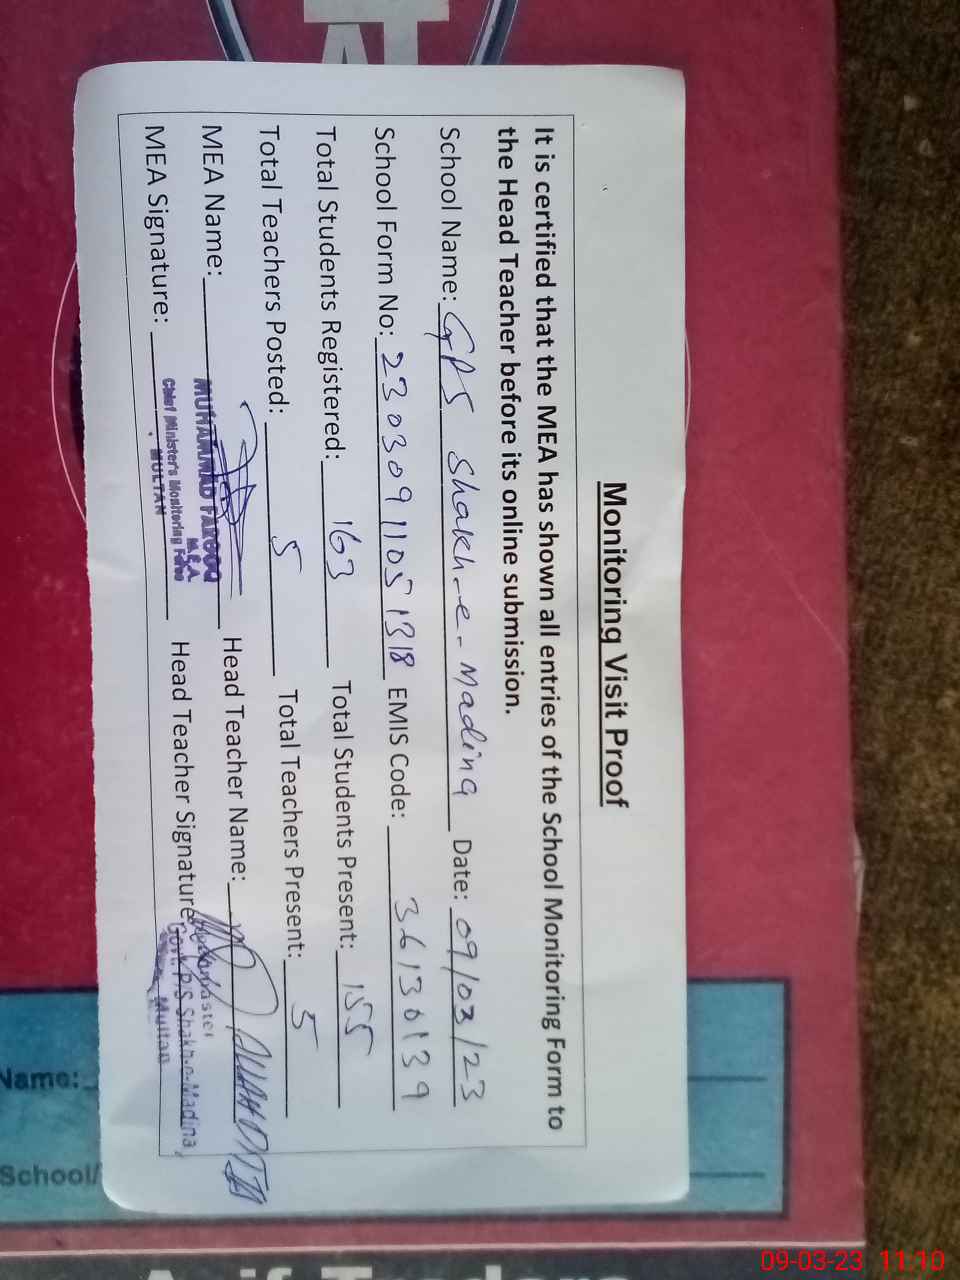 Monitoring Visit Proof
It is certified that the MEA has shown all entries of the School Monitoring Form to
the Head Teacher before its online submission.
School Name: GPS Shakh-e-Madina Date: 09/03/23
School Form No: 23030911051318 EMIS Code: 36130139
Total Students Registered: 163 Total Students Present: 155
Total Teachers Posted: 5 Total Teachers Present: 5
MEA Name: Head Teacher Name:
MUHAMMAD FAROOQ
M.E.A.
Chief Minister's Monitoring Force
MULTAN
MEA Signature: Head Teacher Signature:
Headmaster
Govt. P/S Shakh-e-Madina,
Multan
Name:
School/
09-03-23 11:10